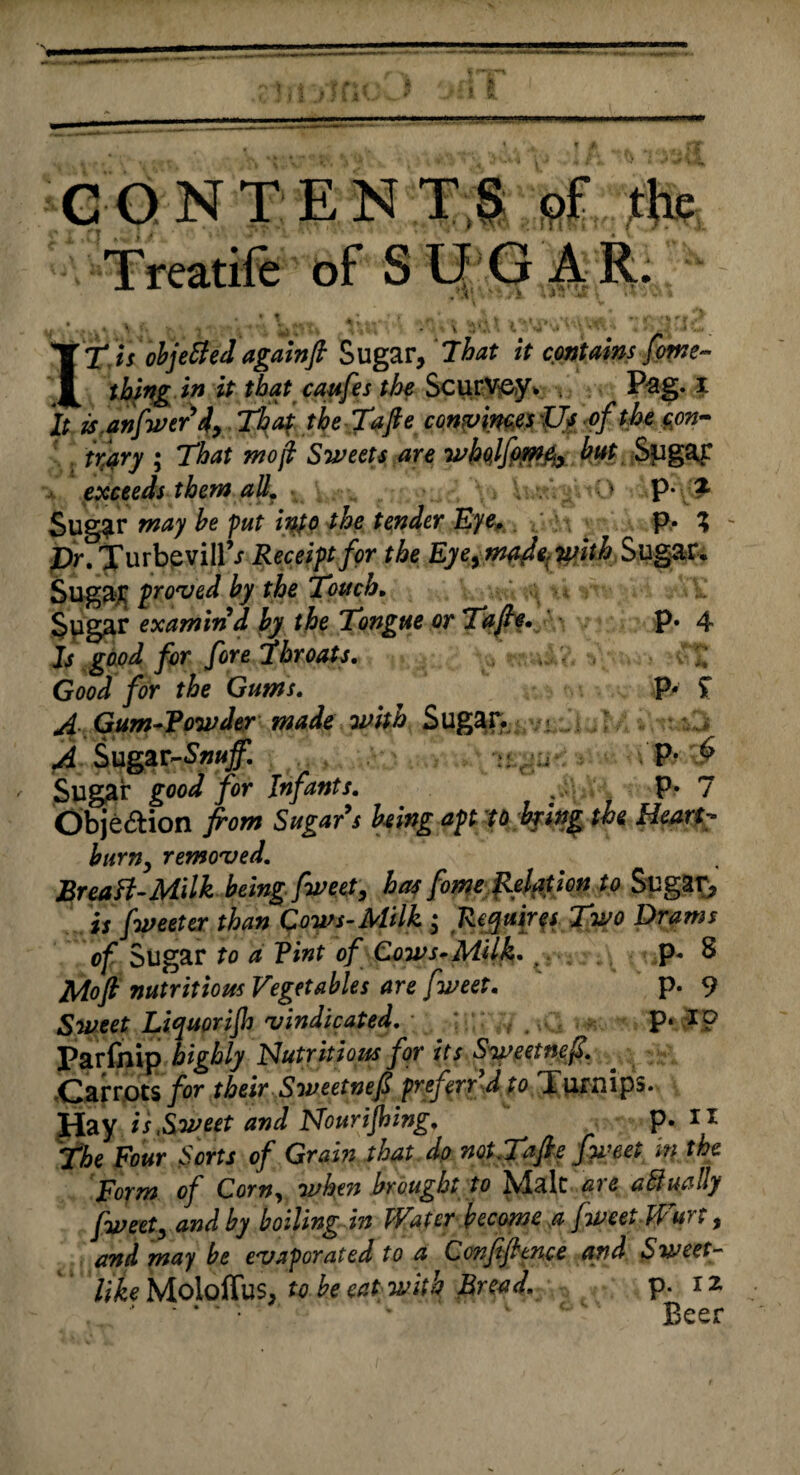 CONTENTS of the
Treatiſe of SUGAR.
IT is objected againſt Sugar, That it contains ſome-
thing in it that cauſes the Scurvey. Pag. 1
It is anſwer'd, That the Taſte convinces Us of the con-
trary ; That moſt Sweets are wholſome, but Sugar
exceeds them all. p. 2
Sugar may be put into the tender Eye. p. 3
Dr. Turbevill's Receipt for the Eye, made with Sugar.
Sugar proved by the Touch.
Sugar examin'd by the Tongue or Taſte. p. 4
Is good for ſore Throats.
Good for the Gums. p. 5
A Gum-Powder made with Sugar.
A Sugar-Snuff. p. 6
Sugar good for Infants. p. 7
Objection from Sugar's being apt to bring the Heart-
burn, removed.
Breaſt-Milk being ſweet, has ſome Relation to Sugar,
is ſweeter than Cows-Milk ; Requires Two Drams
of Sugar to a Pint of Cows-Milk. p. 8
Moſt nutritious Vegetables are ſweet. p. 9
Sweet Liquoriſh vindicated. p. 10
Parſnip highly Nutritious for its Sweetneſs.
Carrots for their Sweetneſs preferr'd to Turnips.
Hay is Sweet and Nouriſhing. p. 11
The Four Sorts of Grain that do not Taſte ſweet in the
Form of Corn, when brought to Malt are actually
ſweet, and by boiling in Water become a ſweet Wurt,
and may be evaporated to a Conſiſtence and Sweet-
like Moloſſus, to be eat with Bread. p. 12
Beer